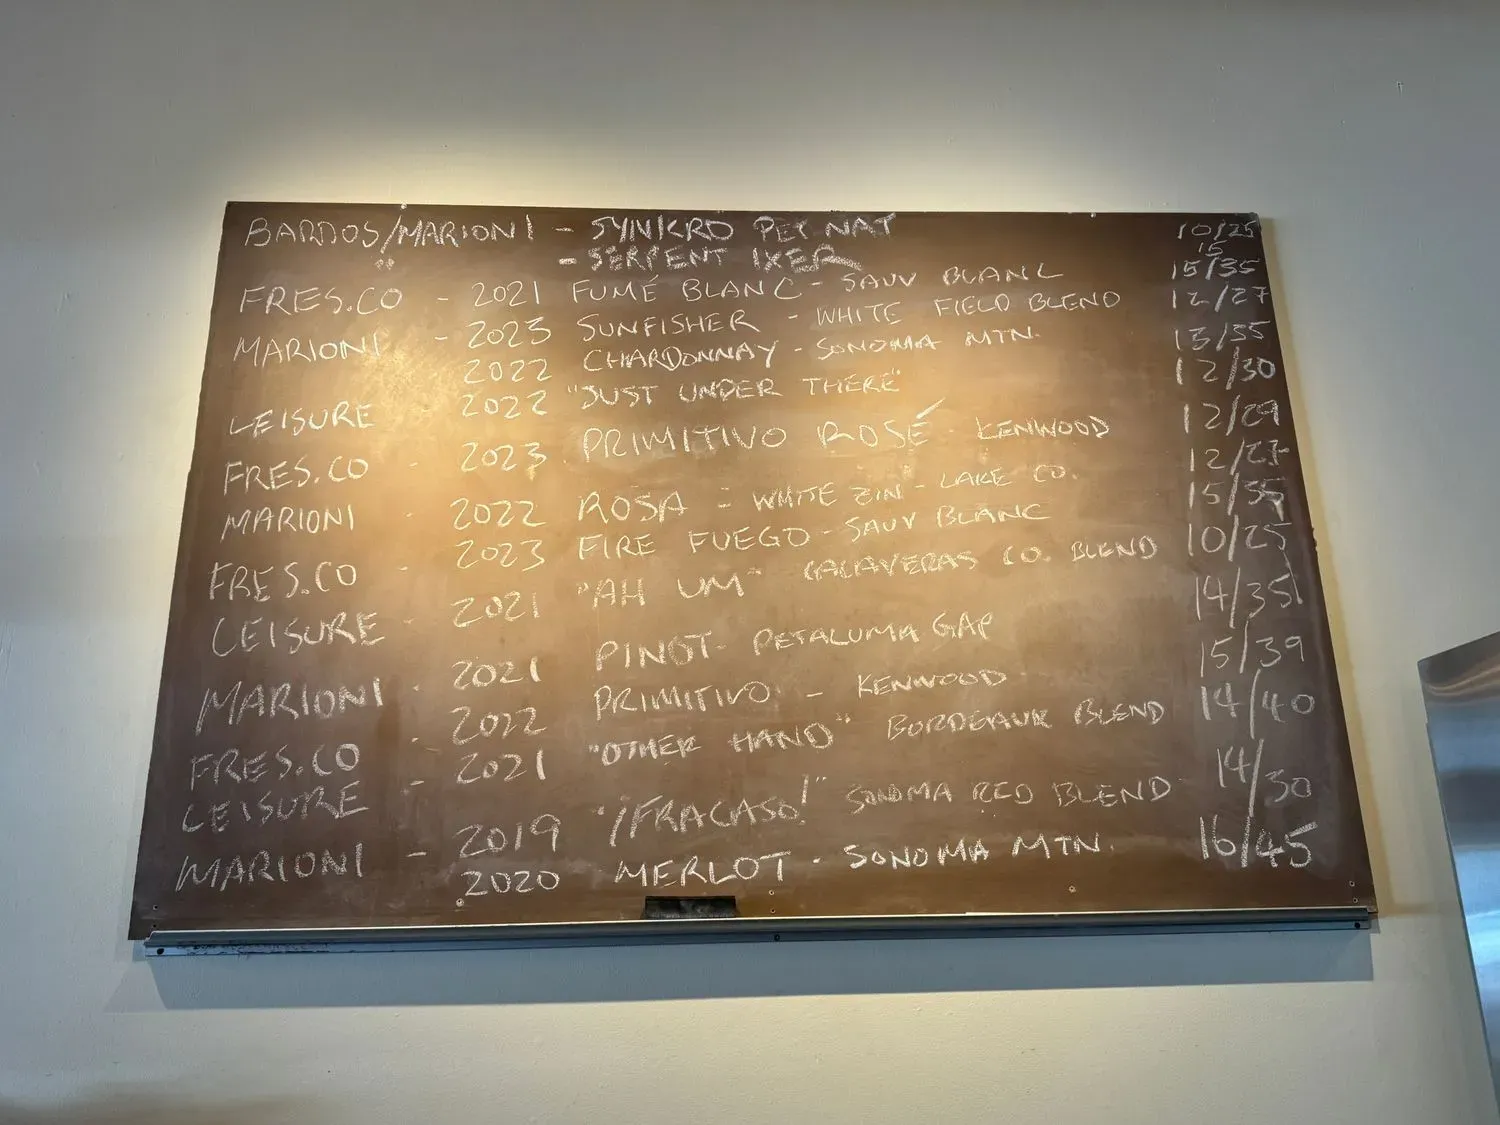 BARDOS/MARIONI - SYNKRO PET NAT 10/25
- SERPENT IXER 15
FRES.CO - 2021 FUMÉ BLANC - SAUV BLANC 15/35
MARIONI - 2023 SUNFISHER - WHITE FIELD BLEND 12/27
2022 CHARDONNAY - SONOMA MTN.
LEISURE - 2022 "JUST UNDER THERE" 12/30
FRES.CO - 2023 PRIMITIVO ROSÉ - KENWOOD 12/29
MARIONI - 2022 ROSA - WHITE ZIN - LAKE CO. 12/27
FRES.CO - 2023 FIRE FUEGO - SAUV BLANC 15/35
LEISURE - 2021 "AH UM" CALAVERAS CO. BLEND 10/25
MARIONI - 2021 PINOT - PETALUMA GAP 14/35
FRES.CO - 2022 PRIMITIVO - KENWOOD 15/39
LEISURE - 2021 "OTHER HAND" BORDEAUX BLEND 14/40
MARIONI - 2019 "¡FRACASO!" SONOMA RED BLEND 14/30
2020 MERLOT - SONOMA MTN. 16/45